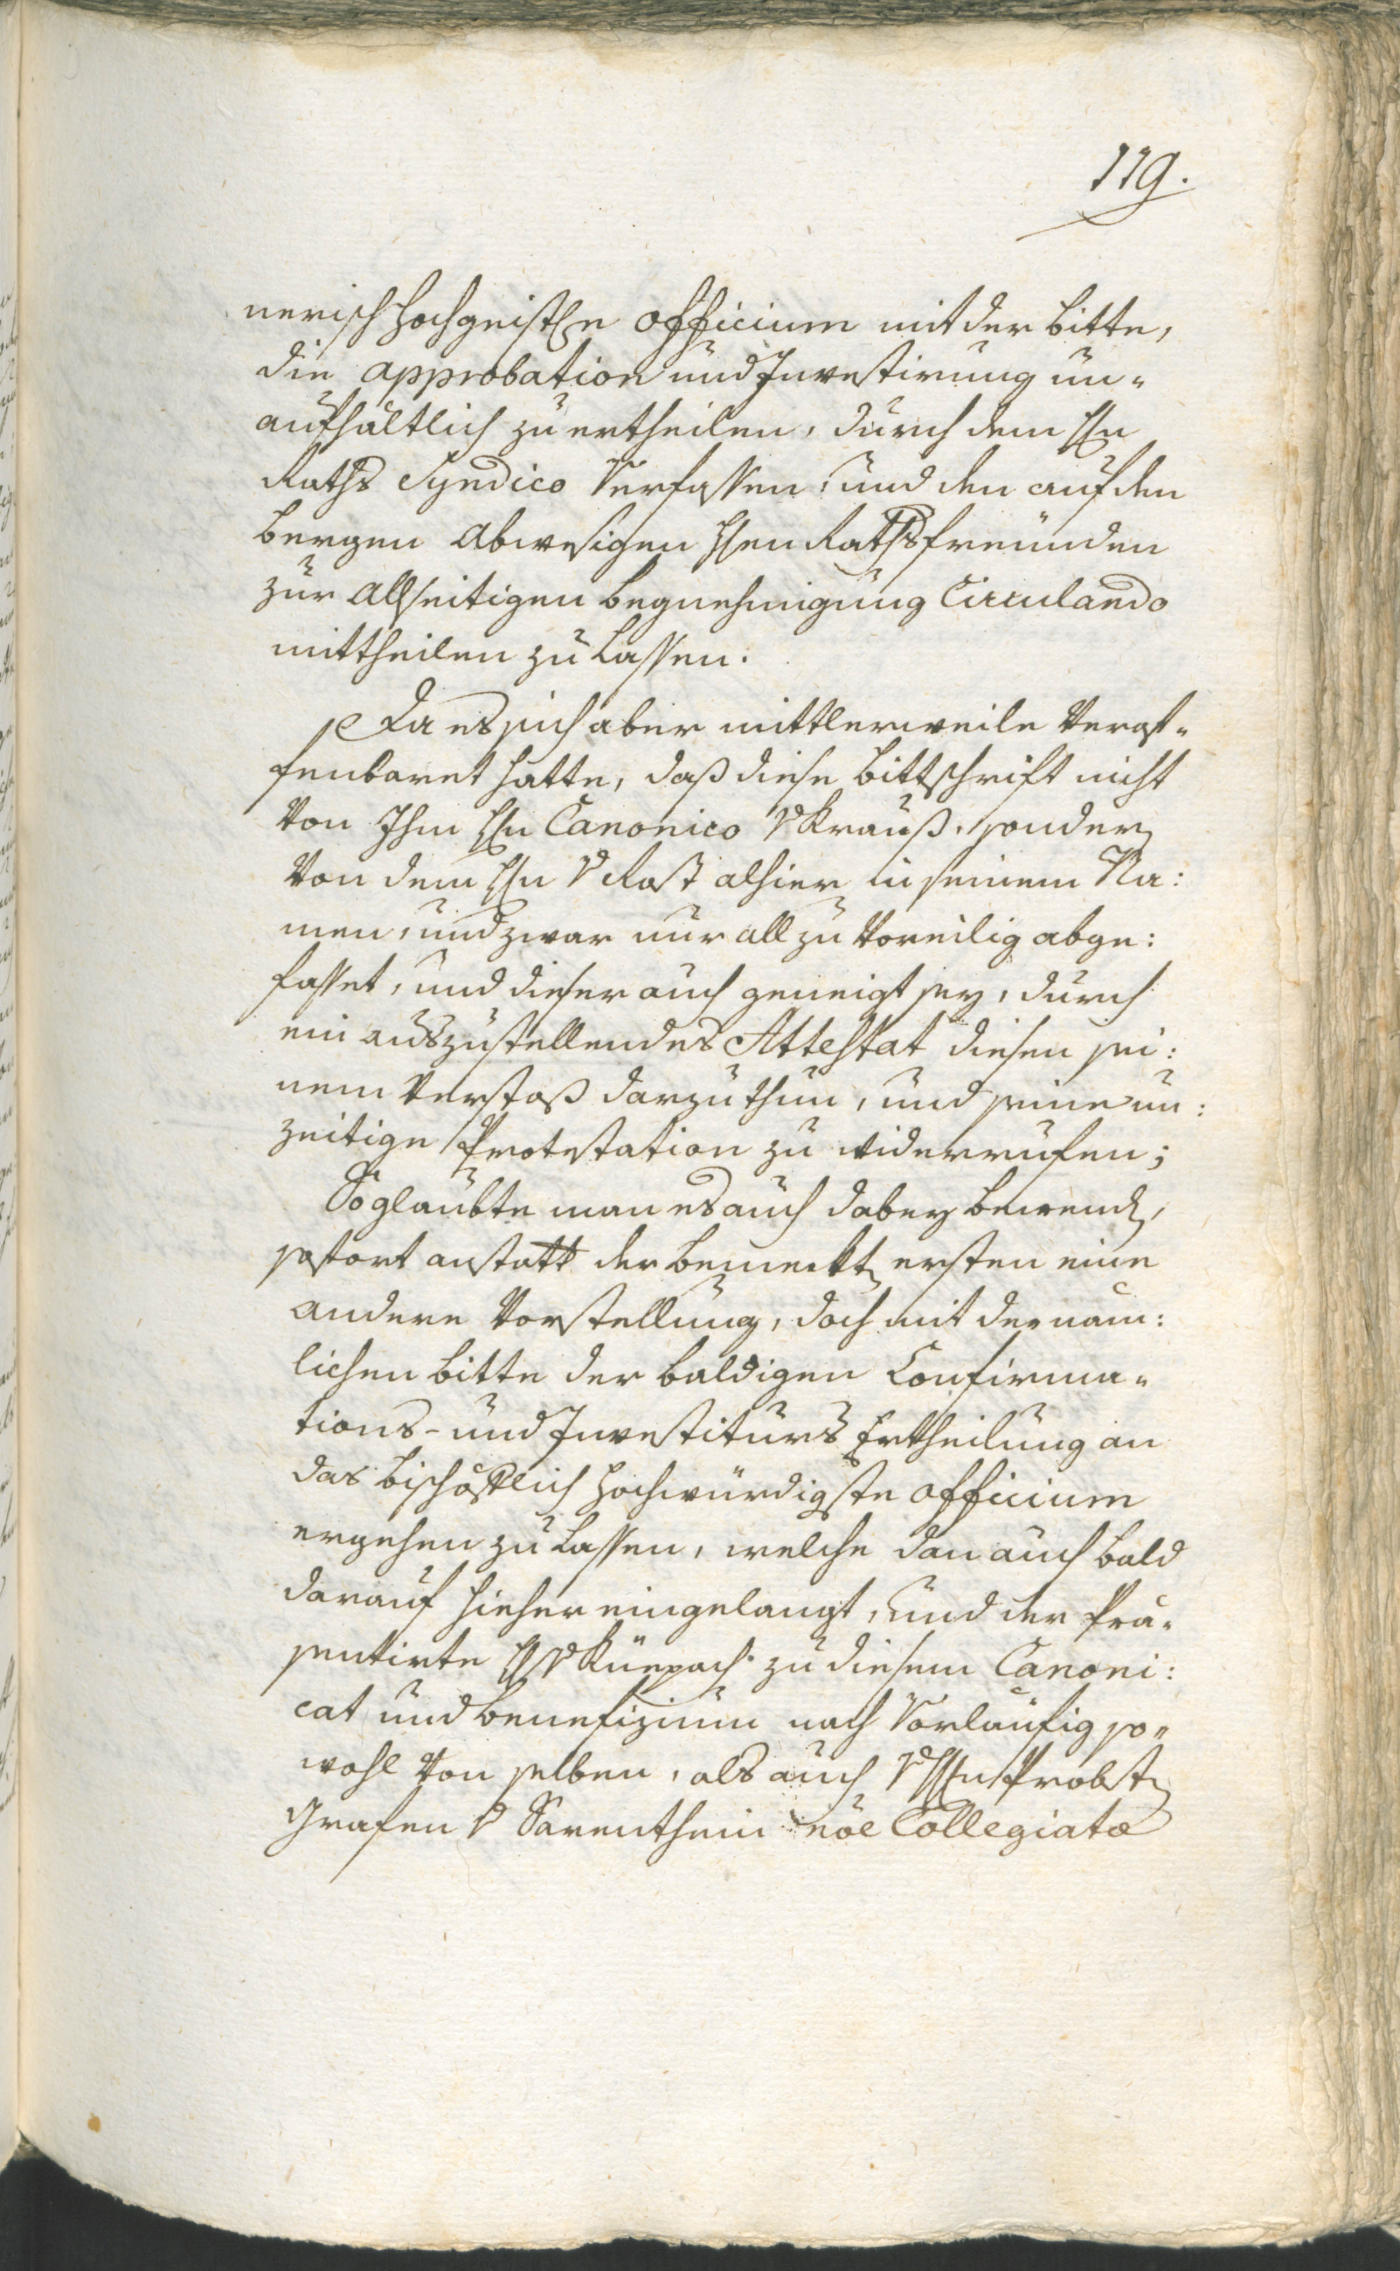 119.
nerisch hochgeistlen officium mit der bitte,
die approbation und Investirung un-
aufhältlich zu ertheilen, durch dem Hln
Raths Syndico Verfassen, und den auf den
bergen Abwesigen Hhen Rathsfreünden
zur Allseitigen begnehmigung Circulando
mittheilen zu lassen.
Da es sich aber mittlerweile Verof-
fenbaret hatte, daß diese bittschrift nicht
Von Ihm Hln Canonico V Krauß, sondern
Von dem Hln V Rost alhier in seinem Na:
men, und zwar nur all zu Voreilig abge:
fasset, und dieser auch geneigt sey, durch
ein auszustellendes Attestat diesen sei:
nem Verstoß darzuthun, und seine un:
zeitige Protestation zu widerrufen;
So glaubte man es auch dabey bewenden,
sofort anstatt der bemerkten ersten eine
andere Vorstellung, doch mit der näm:
lichen bitte der baldigen Confirma-
tions- und Investiturs Ertheilung an
das bischöflich hochwürdigste officium
ergehen zu lassen, welche dan auch bald
darauf hieher eingelangt, und der Prä-
sentirte H V Küepach zu diesem Canoni:
cat und benefizium nach Vorläufig so-
wohl Von selben, als auch V Hln Probsten
Grafen V Sarenthein noe Collegiatæ